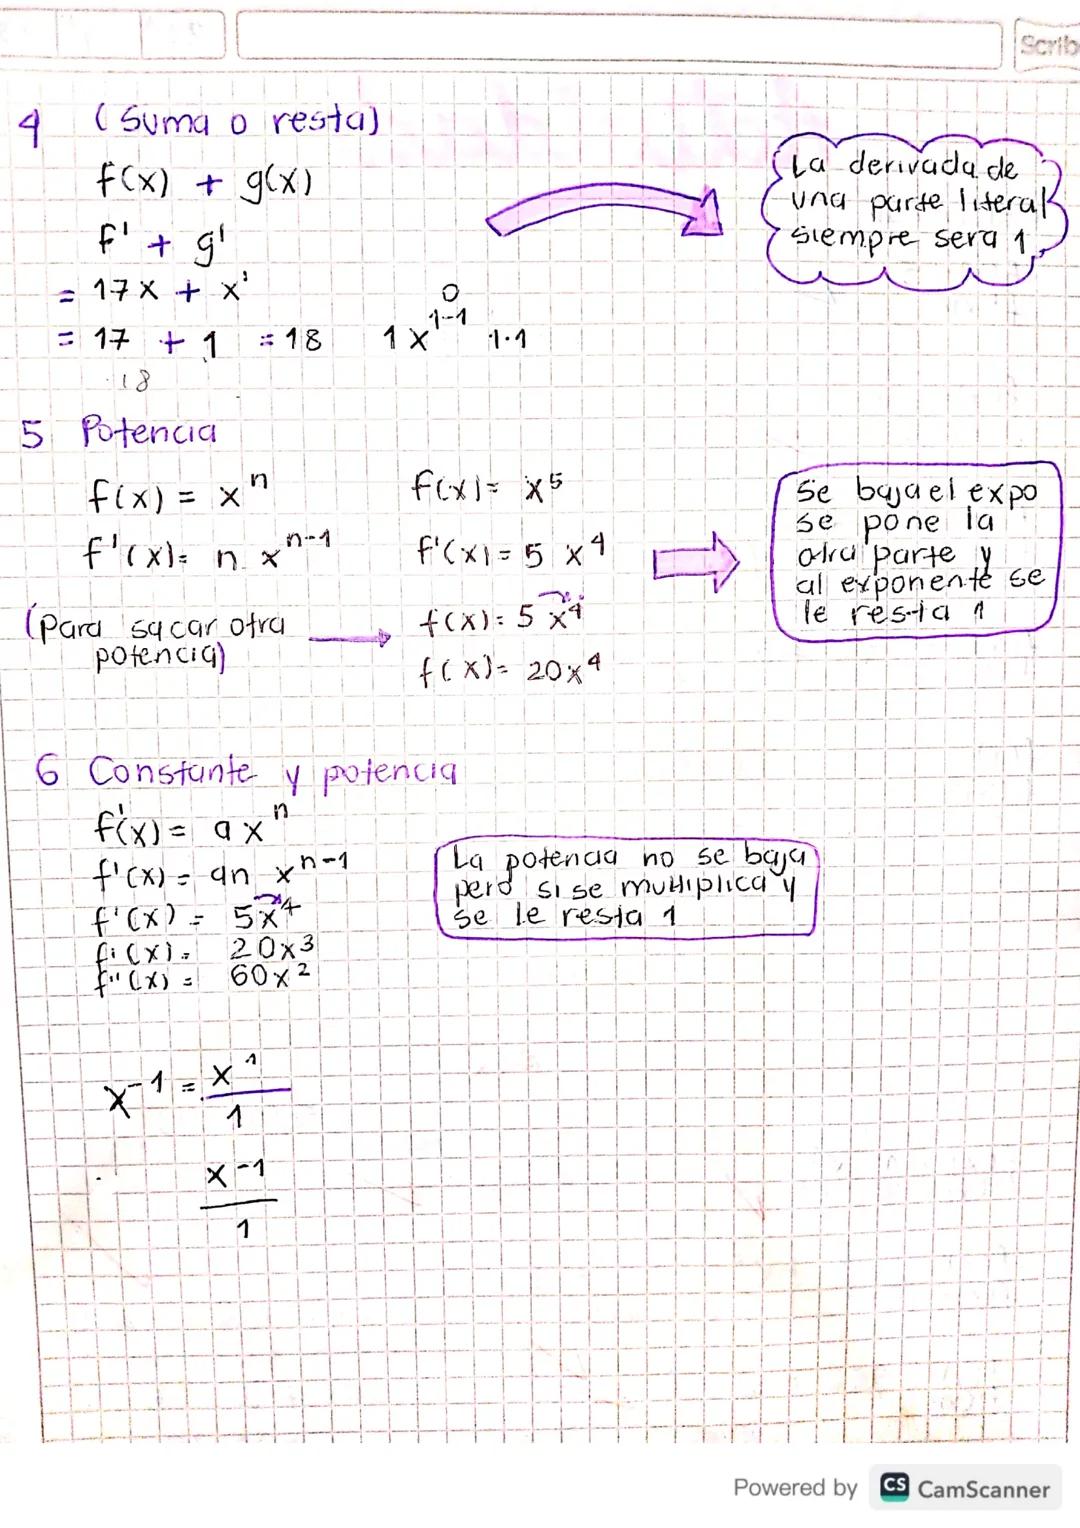 Scrib
4 (Suma o resta)
f(x) + g(x)
f' + g'
= 17x + x'
= 17 + 1 = 18
18
0
1x^1-1 1·1
La derivada de
una parte literal
siempre sera 1
5 Potencia
f(x) = x^n
f'(x)= n x^n-1
(Para sacar otra
potencia)
f(x)= x^5
f'(x)= 5 x^4
f(x)= 5 x^4
f(x)= 20x^4
Se baja el expo
se pone la
otra parte y
al exponente se
le resta 1
6 Constante y potencia
f'(x)= ax^n
f'(x) = an x^n-1
f'(x) = 5x^4
f'(x)= 20x^3
f''(x) = 60x^2
La potencia no se baja
pero si se multiplica y
se le resta 1
x^-1 = x^1
1
x^-1
1
Powered by CS CamScanner